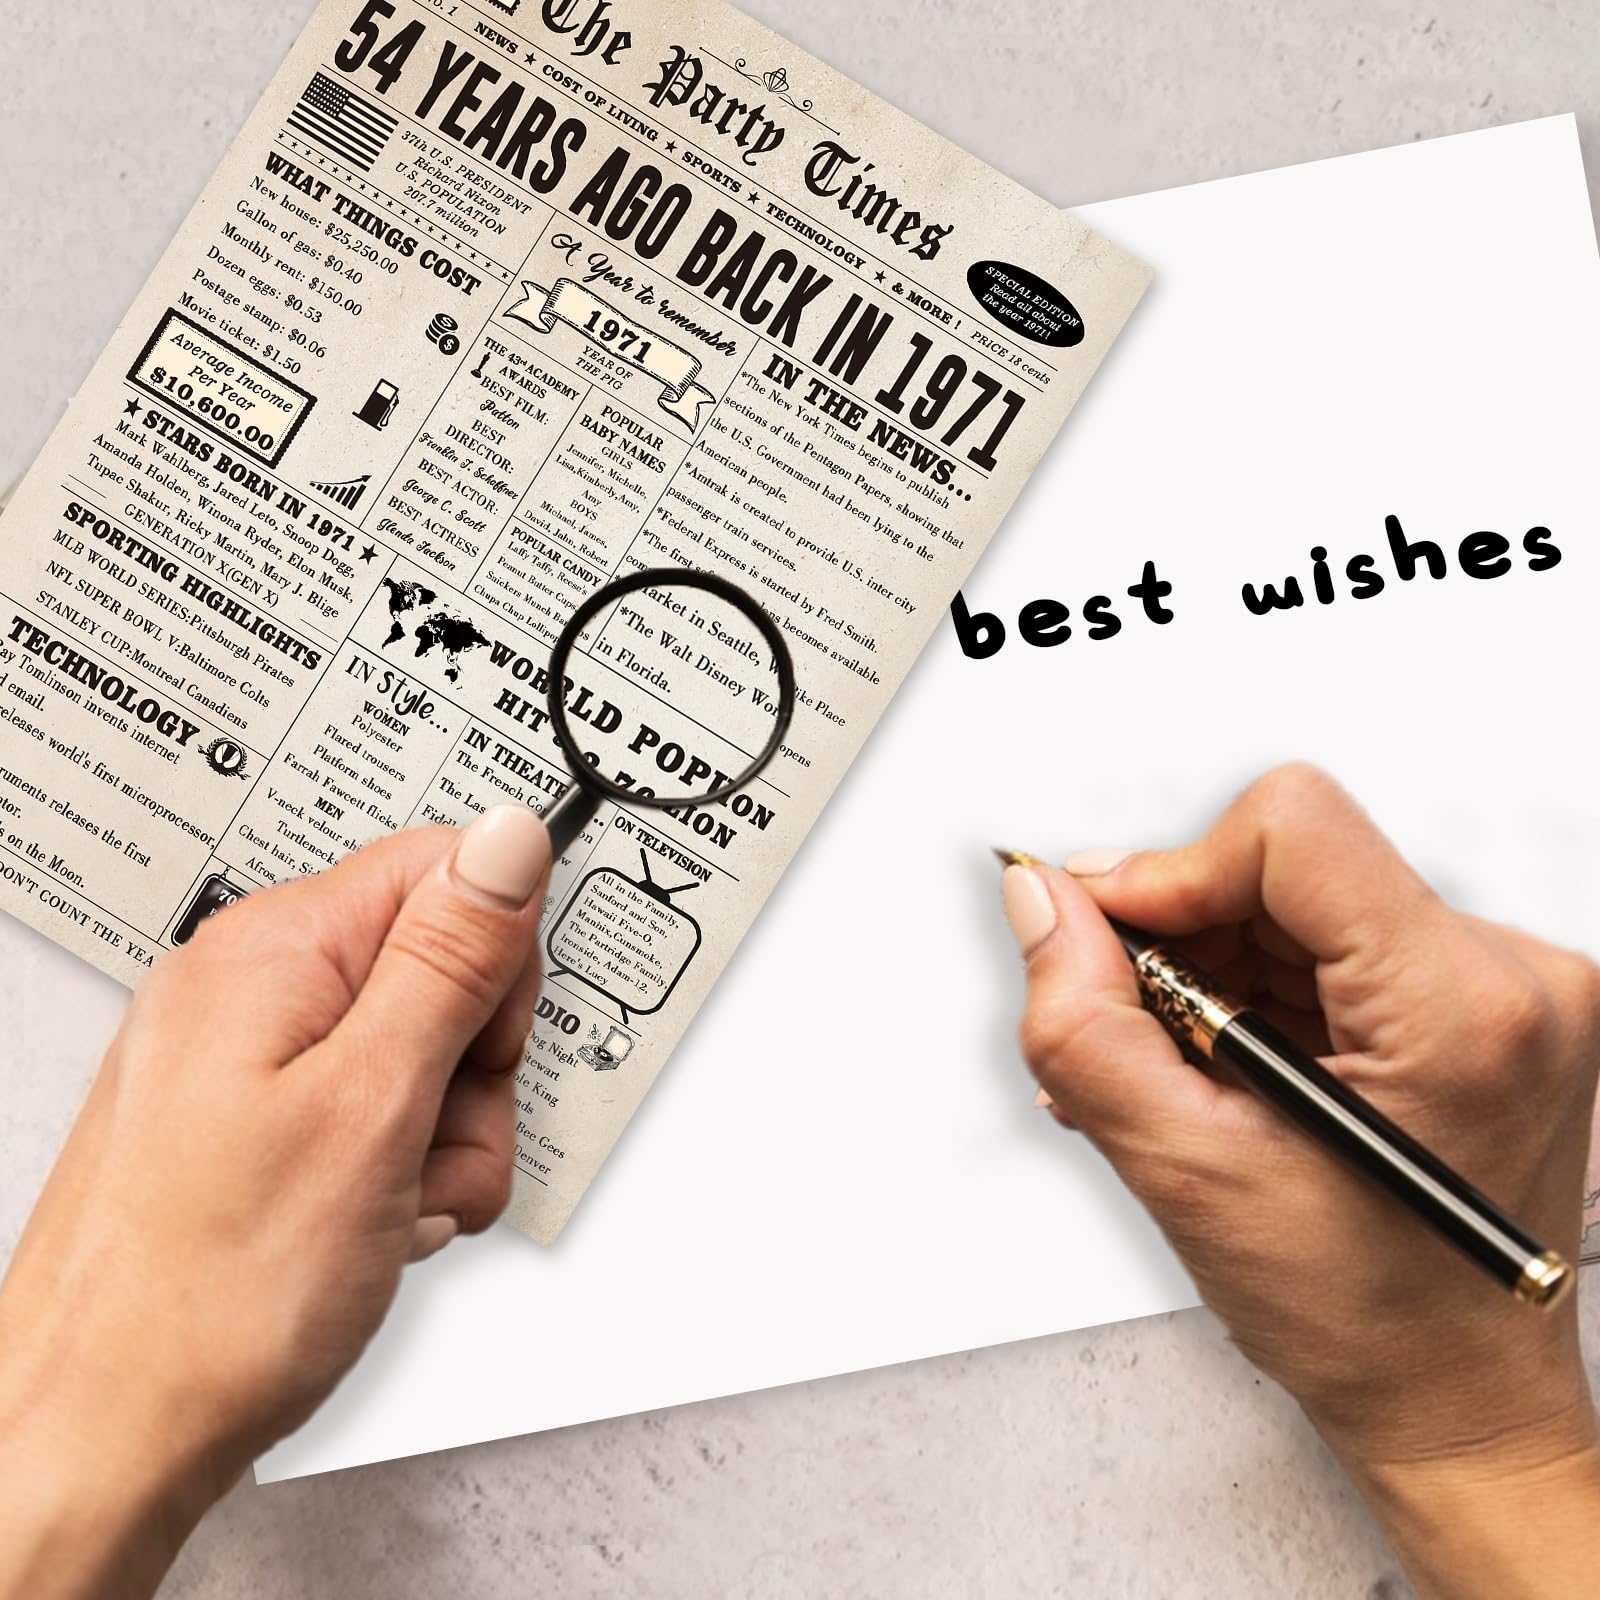 NO. 1
The Party Times
NEWS ★ COST OF LIVING ★ SPORTS ★ TECHNOLOGY ★ & MORE !
PRICE 18 cents
SPECIAL EDITION
Read all about
the year 1971!
54 YEARS AGO BACK IN 1971
37th U.S. PRESIDENT
Richard Nixon
U.S. POPULATION
207.7 million
WHAT THINGS COST
New house: $25,250.00
Gallon of gas: $0.40
Monthly rent: $150.00
Dozen eggs: $0.53
Postage stamp: $0.06
Movie ticket: $1.50
Average Income
Per Year
$10,600.00
★ STARS BORN IN 1971 ★
Mark Wahlberg, Jared Leto, Snoop Dogg,
Amanda Holden, Winona Ryder, Elon Musk,
Tupac Shakur, Ricky Martin, Mary J. Blige
GENERATION X(GEN X)
SPORTING HIGHLIGHTS
MLB WORLD SERIES:Pittsburgh Pirates
NFL SUPER BOWL V:Baltimore Colts
STANLEY CUP:Montreal Canadiens
TECHNOLOGY
Tomlinson invents internet
email.
releases world's first microprocessor,
releases the first
on the Moon.
DON'T COUNT THE
A Year to remember
1971
YEAR OF
THE PIG
THE 43rd ACADEMY
AWARDS
BEST FILM:
Patton
BEST
DIRECTOR:
Franklin J. Schaffner
BEST ACTOR:
George C. Scott
BEST ACTRESS
Glenda Jackson
POPULAR
BABY NAMES
GIRLS
Jennifer, Michelle,
Lisa,Kimberly,Amy,
Amy
BOYS
Michael, James,
David, John, Robert
POPULAR CANDY
Laffy Taffy, Reese's
Peanut Butter Cups,
Snickers Munch
Chupa Chup Lollipop
IN THE NEWS...
*The New York Times begins to publish
sections of the Pentagon Papers, showing that
the U.S. Government had been lying to the
American people.
*Amtrak is created to provide U.S. inter city
passenger train services.
*Federal Express is started by Fred Smith.
*The first
becomes available
Market in Seattle,
Pike Place
*The Walt Disney
opens
in Florida.
WORLD
HIT
IN Style...
WOMEN
Polyester
Flared trousers
Platform shoes
Farrah Fawcett flicks
MEN
V-neck velour
Turtlenecks
Chest hair,
Afros,
70
IN
The French
The
ON TELEVISION
All in the Family,
Sanford and Son,
Hawaii Five-O,
Manhix,Gunsmoke,
The Partridge Family,
Ironside, Adam-12,
Here's Lucy
Dog Night
Stewart
King
Bee Gees
Denver
best wishes